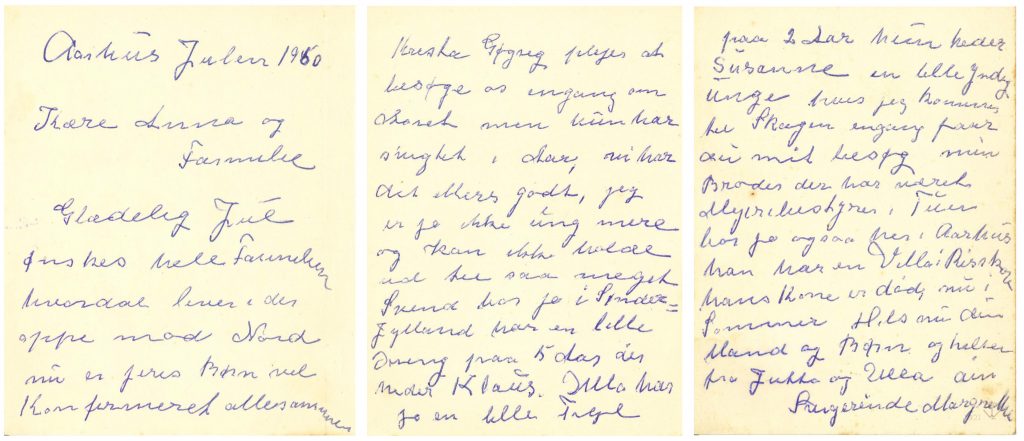 Aarhus Julen 1960
Kære Anna og
Familie
Glædelig Jul
ønskes hele Familien
hvordan lever i der
oppe mod Nord
nu er jeres Børn vel
Konfirmeret allesammen
Kresta plejer at
besøge os engang om
Aaret men hun har
svigtet i Aar, vi har
det alles godt, jeg
er jo ikke ung mere
og kan ikke holde
ud til saa meget
Svend bor jo i Sønder-
jylland har en lille
Dreng paa 5 Aar der
heder Klaus. Ulla har
jo en lille Pige
paa 2 Aar hun heder
Susanne en lille Yndig
Unge hvis jeg kommer
til Skagen engang faar
du mit besøg min
Broder der har været
Mejeribestyrer i Tuen
bor jo ogsaa her i Aarhus
han har en Villa i Risskov
hans Kone er død nu i
Sommer Hils nu din
Mand og Børn og hilsen
fra Jutta og Ulla din
Svigerinde Margrethe